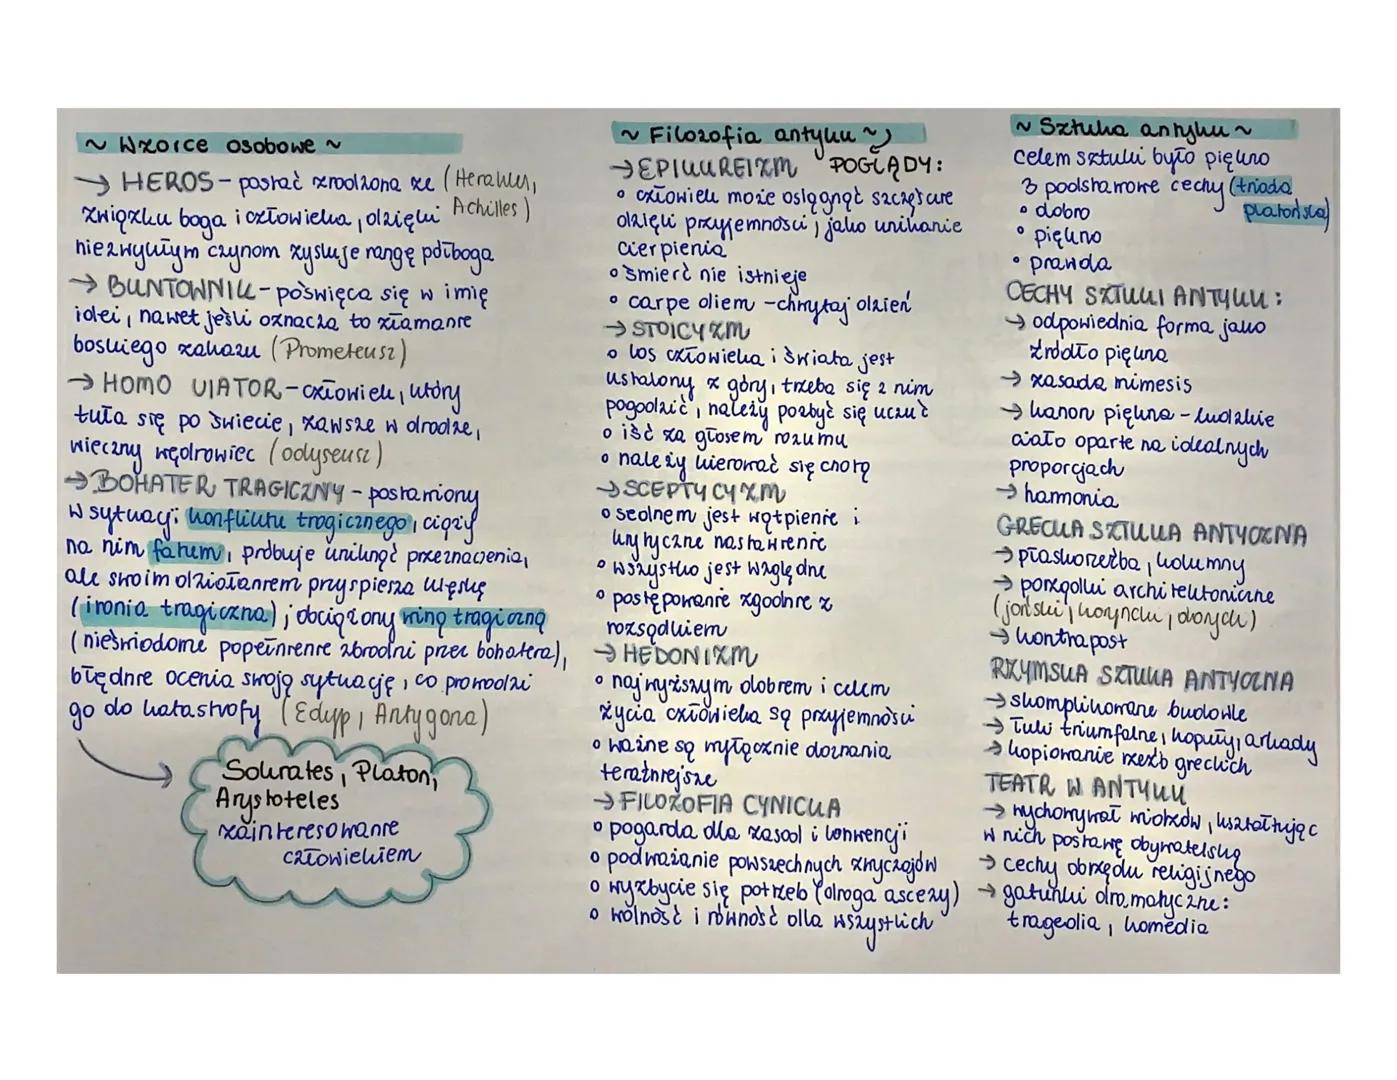 ~ Wzorce osobowe ~
→ HEROS - postać zrodzona ze (Herakles,
związku boga i człowieka, dzięki Achilles)
niezwykłym czynom zyskuje rangę półboga
→ BUNTOWNIK - poświęca się w imię
idei, nawet jeśli oznacza to złamanie
boskiego zakazu (Prometeusz)
→ HOMO VIATOR - człowiek, który
tuła się po świecie, zawsze w drodze,
wieczny wędrowiec (odyseusz)
→ BOHATER TRAGICZNY - postawiony
w sytuacji konfliktu tragicznego, ciąży
na nim fatum, próbuje uniknąć przeznaczenia,
ale swoim działaniem przyspiesza klęskę
(ironia tragiczna); obciążony winą tragiczną
(nieświadome popełnienie zbrodni przez bohatera),
błędnie ocenia swoją sytuację, co prowadzi
go do katastrofy (Edyp, Antygona)
Sokrates, Platon,
Arystoteles
zainteresowanie
człowiekiem
~ Filozofia antyku ~
→ EPIKUREIZM POGLĄDY:
• człowiek może osiągnąć szczęście
dzięki przyjemności, jako unikanie
cierpienia
• śmierć nie istnieje
• carpe diem - chwytaj dzień
→ STOICYZM
• los człowieka i świata jest
ustalony z góry, trzeba się z nim
pogodzić, należy pozbyć się uczuć
• iść za głosem rozumu
• należy kierować się cnotą
→ SCEPTYCYZM
• sednem jest wątpienie i
krytyczne nastawienie
• wszystko jest względne
• postępowanie zgodnie z
rozsądkiem
→ HEDONIZM
• najwyższym dobrem i celem
życia człowieka są przyjemności
• ważne są wyłącznie doznania
teraźniejsze
→ FILOZOFIA CYNICKA
• pogarda dla zasad i konwencji
• podważanie powszechnych zwyczajów
• wyzbycie się potrzeb (droga ascezy)
• wolność i równość dla wszystkich
~ Sztuka antyku ~
celem sztuki było piękno
3 podstawowe cechy (triada
platońska)
• dobro
• piękno
• prawda
CECHY SZTUKI ANTYKU:
→ odpowiednia forma jako
źródło piękna
→ zasada mimesis
→ kanon piękna - ludzkie
ciało oparte na idealnych
proporcjach
→ harmonia
GRECKA SZTUKA ANTYCZNA
→ płaskorzeźba, kolumny
→ porządki architektoniczne
(joński, koryncki, dorycki)
→ kontrapost
RZYMSKA SZTUKA ANTYCZNA
→ skomplikowane budowle
→ łuki triumfalne, kopuły, arkady
→ kopiowanie rzeźb greckich
TEATR W ANTYKU
→ wychowywał widzów, kształtując
w nich postawę obywatelską
→ cechy obrzędu religijnego
→ gatunki dramatyczne:
tragedia, komedia